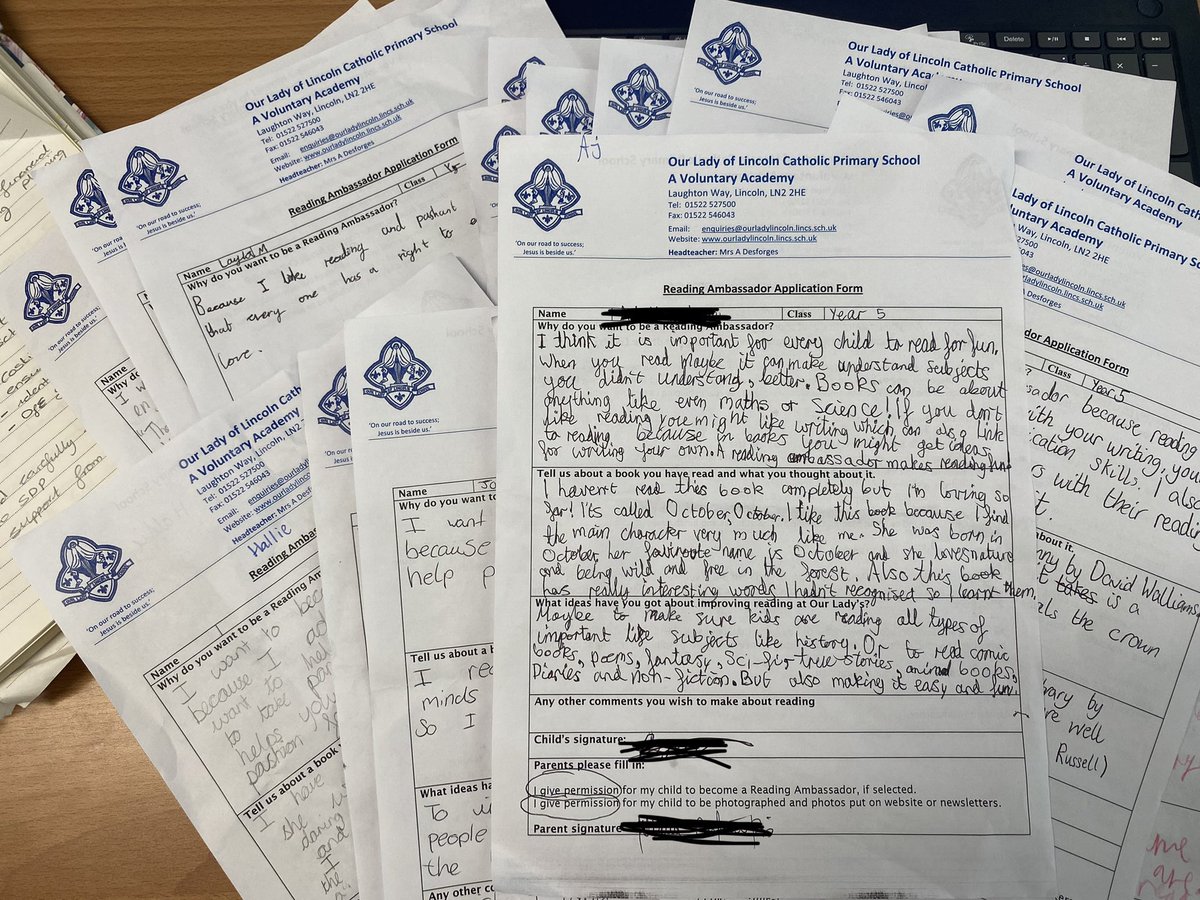 Our Lady of Lincoln Catholic Primary School
A Voluntary Academy
Laughton Way, Lincoln, LN2 2HE
Tel: 01522 527500
Fax: 01522 546043
Email: enquiries@ourladylincoln.lincs.sch.uk
Website: www.ourladylincoln.lincs.sch.uk
Headteacher: Mrs A Desforges
'On our road to success;
Jesus is beside us.'
Reading Ambassador Application Form
Name Class Year 5
Why do you want to be a Reading Ambassador?
I think it is important for every child to read for fun.
When you read maybe it can make understand subjects
you didn't understand, better. Books can be about
anything like even maths or Science! If you don't
like reading you might like writing which can also link
to reading because in books you might get ideas
for writing your own. A reading ambassador makes reading fun
Tell us about a book you have read and what you thought about it.
I havent read this book ompletely but i'm loving so
far! It's called October, October. I like this book because I find
the main character very much like me. She was born in
October, her favinrote name is October and she loves nature
and being wild and free in the forest. Also this book
has really interesting words I hadn't recognised so I learnt them.
What ideas have you got about improving reading at Our Lady's?
Maybe to make sure kids are reading all types of
important like subjects like history. Or to read comic
books, poems, fantasy, Sci-fi, true stories, animal books,
Diaries and non-fiction. But also making it easy and fun.
Any other comments you wish to make about reading
Child's signature:
Parents please fill in:
I give permission for my child to become a Reading Ambassador, if selected.
I give permission for my child to be photographed and photos put on website or newsletters.
Parent signature
AJ
Our Lady of Lincoln Catholic Primary School
A Voluntary Academy
Laughton Way, Lincoln, LN2 2HE
Tel: 01522 527500
Fax: 01522 546043
Email: enquiries@ourladylincoln.lincs.sch.uk
Website: www.ourladylincoln.lincs.sch.uk
Headteacher: Mrs A Desforges
'On our road to success;
Jesus is beside us.'
Reading Ambassador Application Form
Name Layla M Class Y5
Why do you want to be a Reading Ambassador?
Because I like reading and pashunt
that every one has a right to
love.
Our Lady of Lincoln Catholic Primary School
A Voluntary Academy
Laughton Way, Lincoln, LN2 2HE
Tel: 01522 527500
Fax: 01522 546043
'On our road to success;
Jesus is beside us.'
Our Lady of Lincoln
A Voluntary Academy
Laughton Way, Lincoln
Tel: 01522 527500
Fax: 01522 546043
Email: enquiries@
Website: www.ourlady
Headteacher: Mrs A Des
Hallie
'On our road to success;
Jesus is beside us.'
Reading
Name
Why do you want to be a Reading
I want to
because I
want to
to take
helps
pashion
Tell us about a book
I have
she
daring
and
I
the
'On our road to success;
Jesus is beside us.'
Name
Why do you want
I want
because
help
Tell us about a b
I rea
minds
so I
What ideas h
To
people
the
Any other co
Lady of Lincoln Catholic Primary School
Voluntary Academy
ourladylincoln.lincs.sch.uk
Desforges
Application Form
Class Year 5
because reading
with your writing, your
skills. I also
with their reading
about it.
by David Walliams
takes is a
the crown
by
well
Russell)
Delete